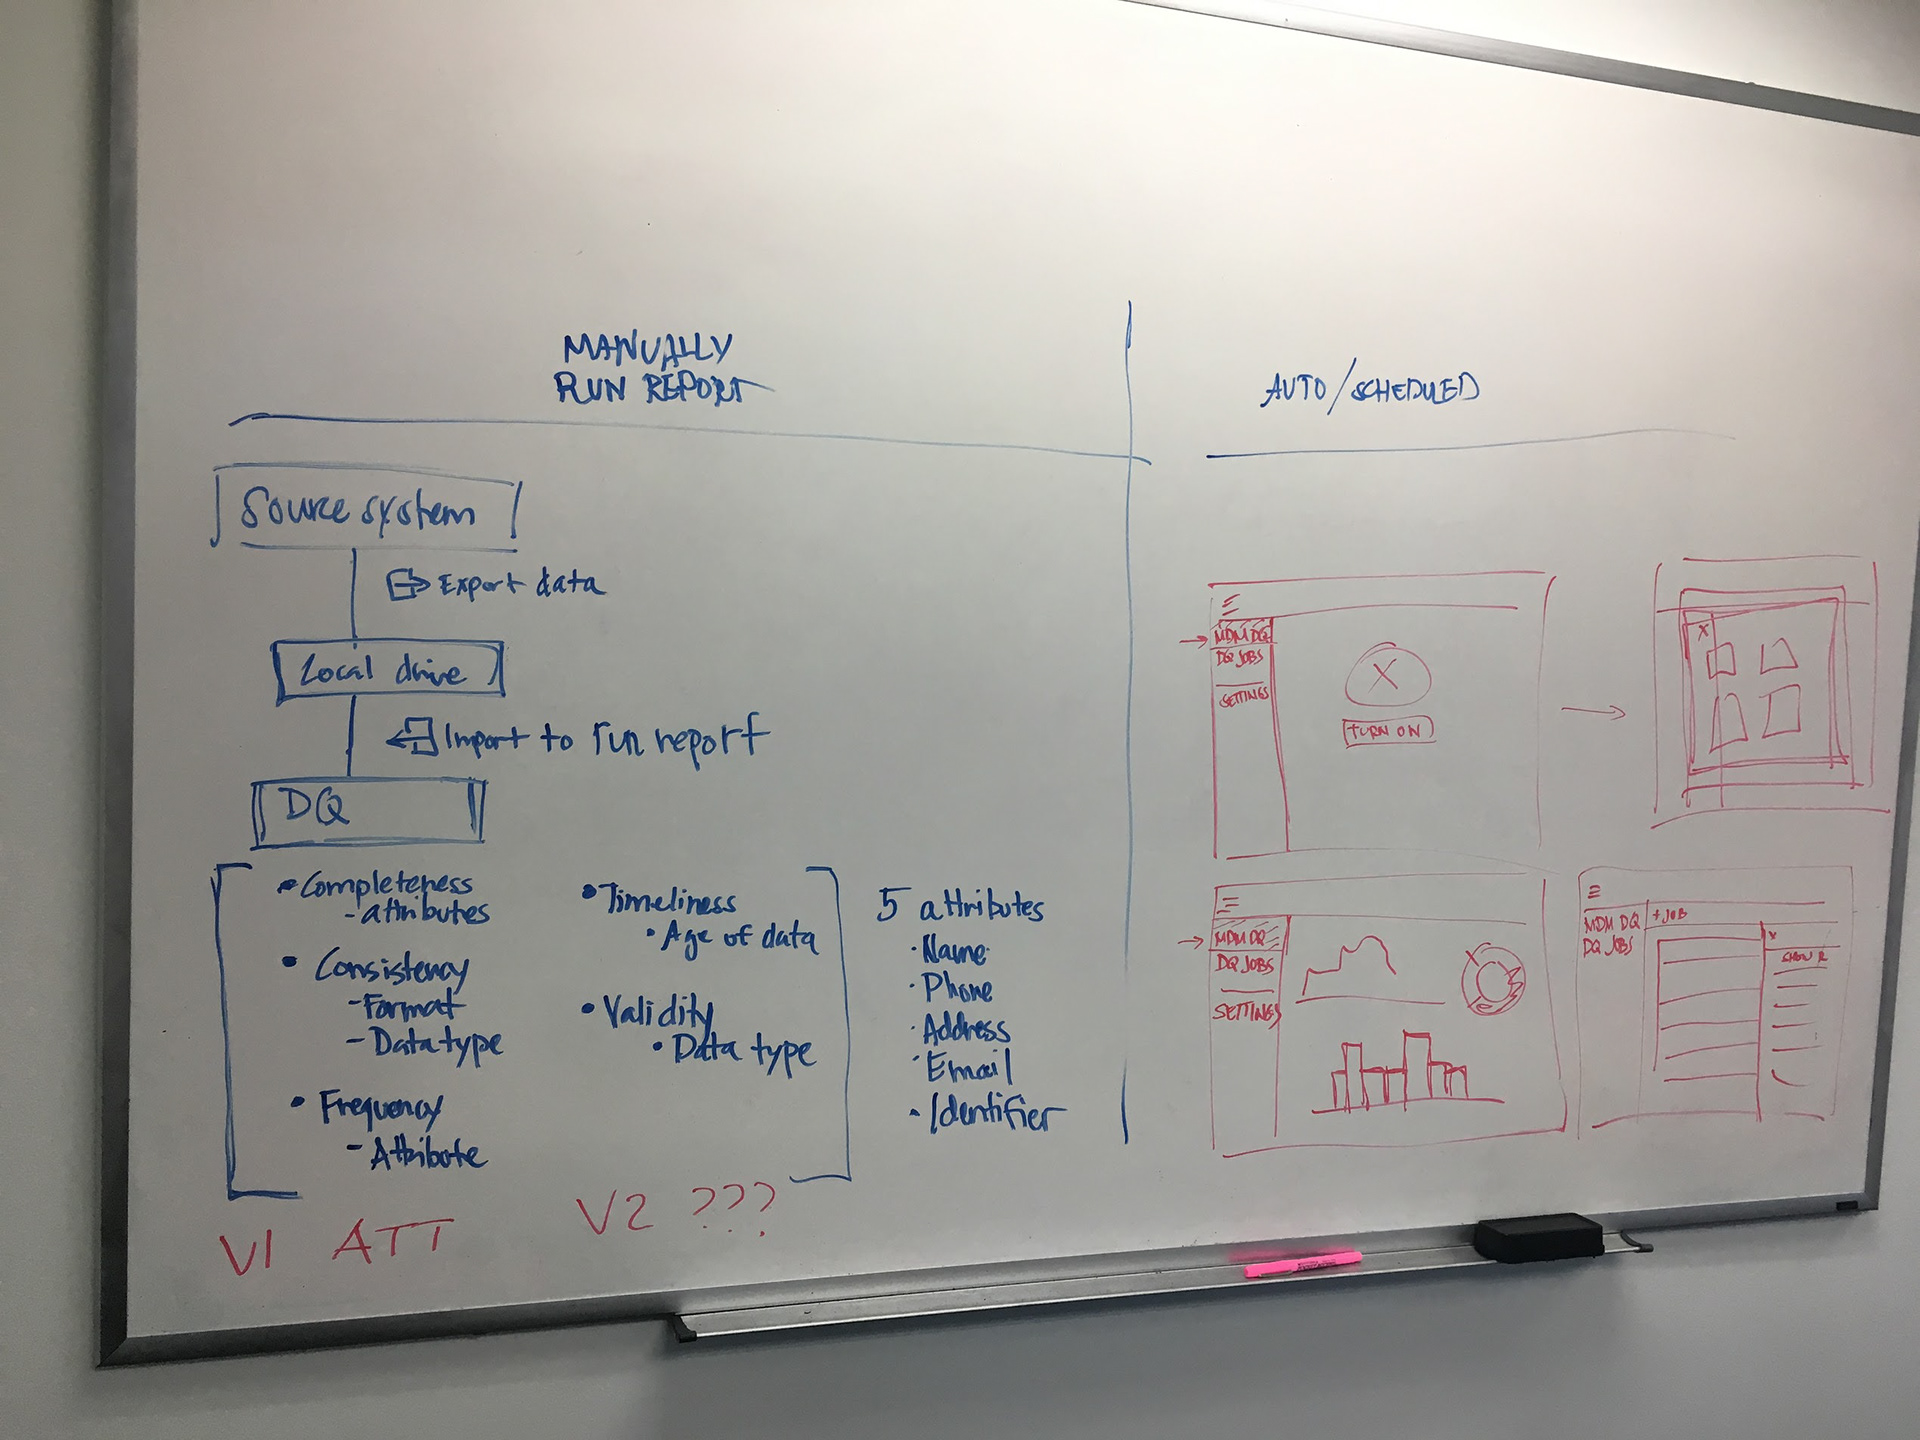 MANUALLY
RUN REPORT
Source system
Export data
Local drive
Import to run report
DQ
• Completeness
- attributes
• Consistency
- Format
- Data type
• Frequency
- Attribute
• Timeliness
• Age of data
• Validity
• Data type
5 attributes
· Name
· Phone
· Address
· Email
· Identifier
V1 ATT
V2 ???
AUTO/SCHEDULED
MDM DQ
DQ JOBS
SETTINGS
X
TURN ON
X
MDM DQ
DQ JOBS
SETTINGS
MDM DQ
DQ JOBS
+ JOB
x